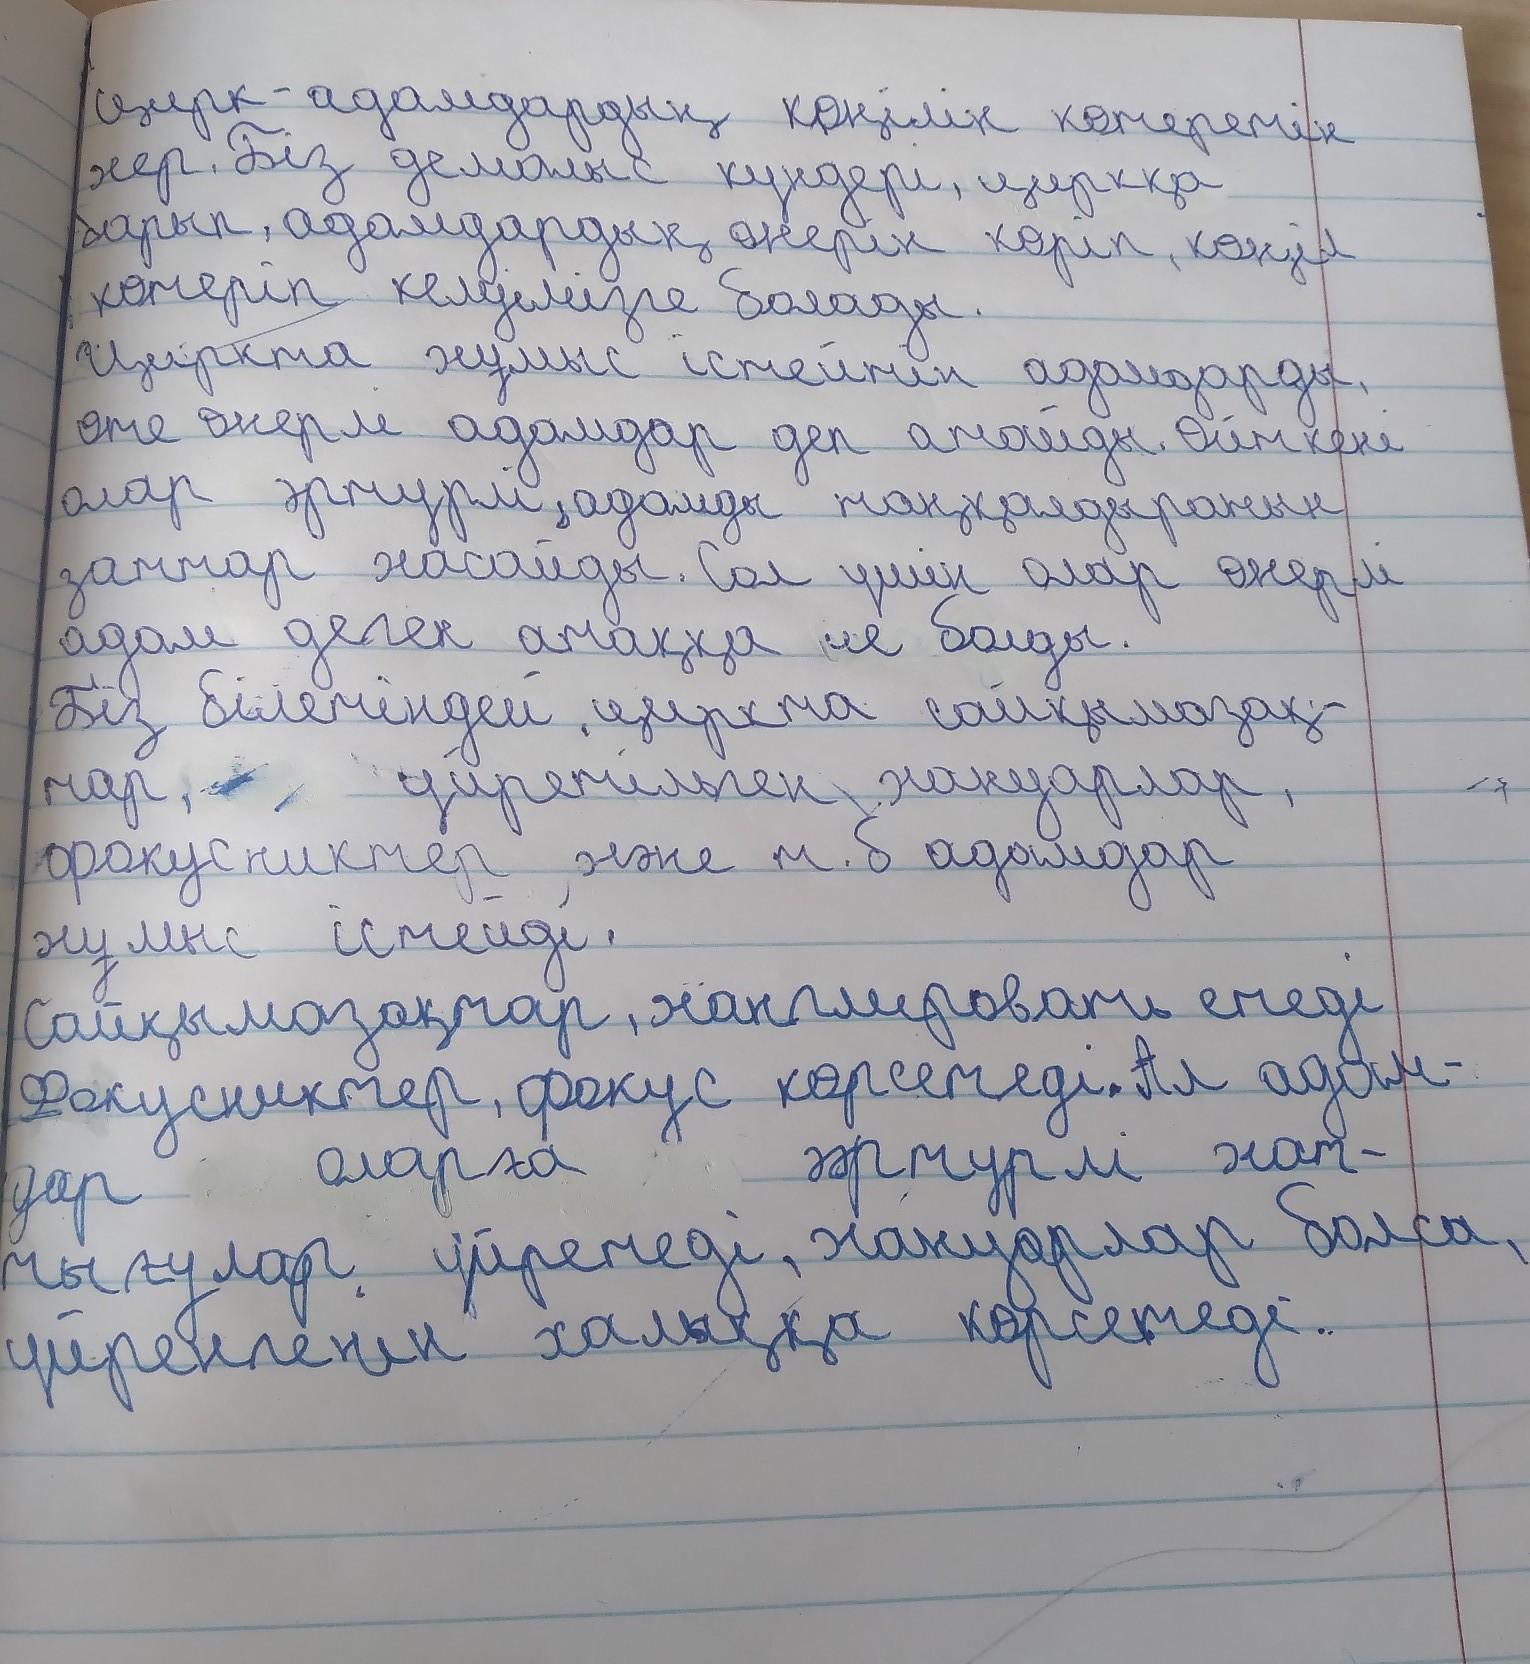 Цирк-адамдардың көңілін көтеретін
жер. Біз демалыс күндері, циркқа
барып, адамдардың өнерін көріп, көңіл
көтеріп келуімізге болады.
Циркта жұмыс істейтін адамдарды,
өте өнерлі адамдар деп атайды. Өйткені
олар әртүрлі, адамды таңқалдыратын
заттар жасайды. Сол үшін олар өнерлі
адам деген атаққа ие болды.
Біз білетіндей, циркта сайқымазақ-
тар, үйретілген жануарлар,
фокусниктер жже т.б адамдар
жұмыс істейді.
Сайқымазақтар, жанглировать етеді
Фокусниктер, фокус көрсетеді. Ал адам-
дар оларға әртүрлі жат-
тығулар үйретеді, жануарлар болса,
үйренгенін халыққа көрсетеді.